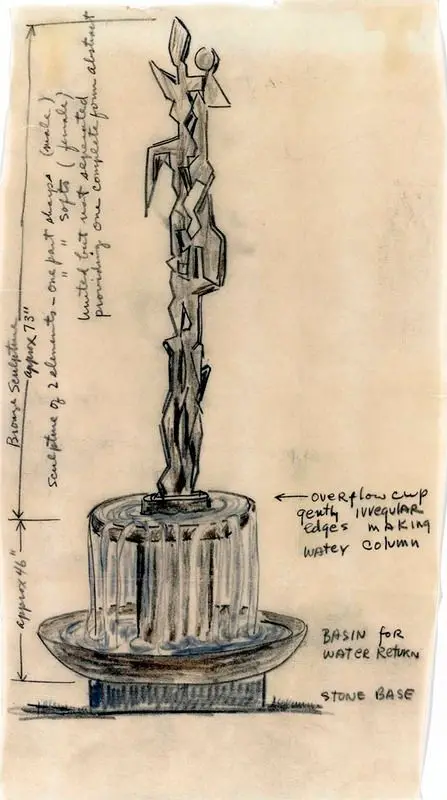 Bronze Sculpture
approx 73"
Sculpture of 2 elements - one part sharps (male)
" " softs (female)
United but not separated
providing one complete form abstract
approx 46"
← OVERFLOW CUP
gently IRREGULAR
edges MAKING
WATER COLUMN
BASIN FOR
WATER RETURN
STONE BASE